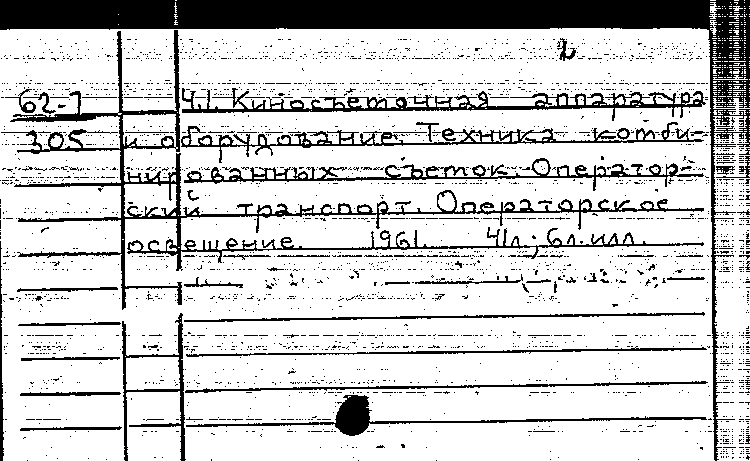 2
62-7 Ч.1. Киносъемочная аппаратура
305 и оборудование. Техника комби-
нированных съемок. Оператор-
ский транспорт. Операторское
освещение. 1961. 41л.; 6л. илл.